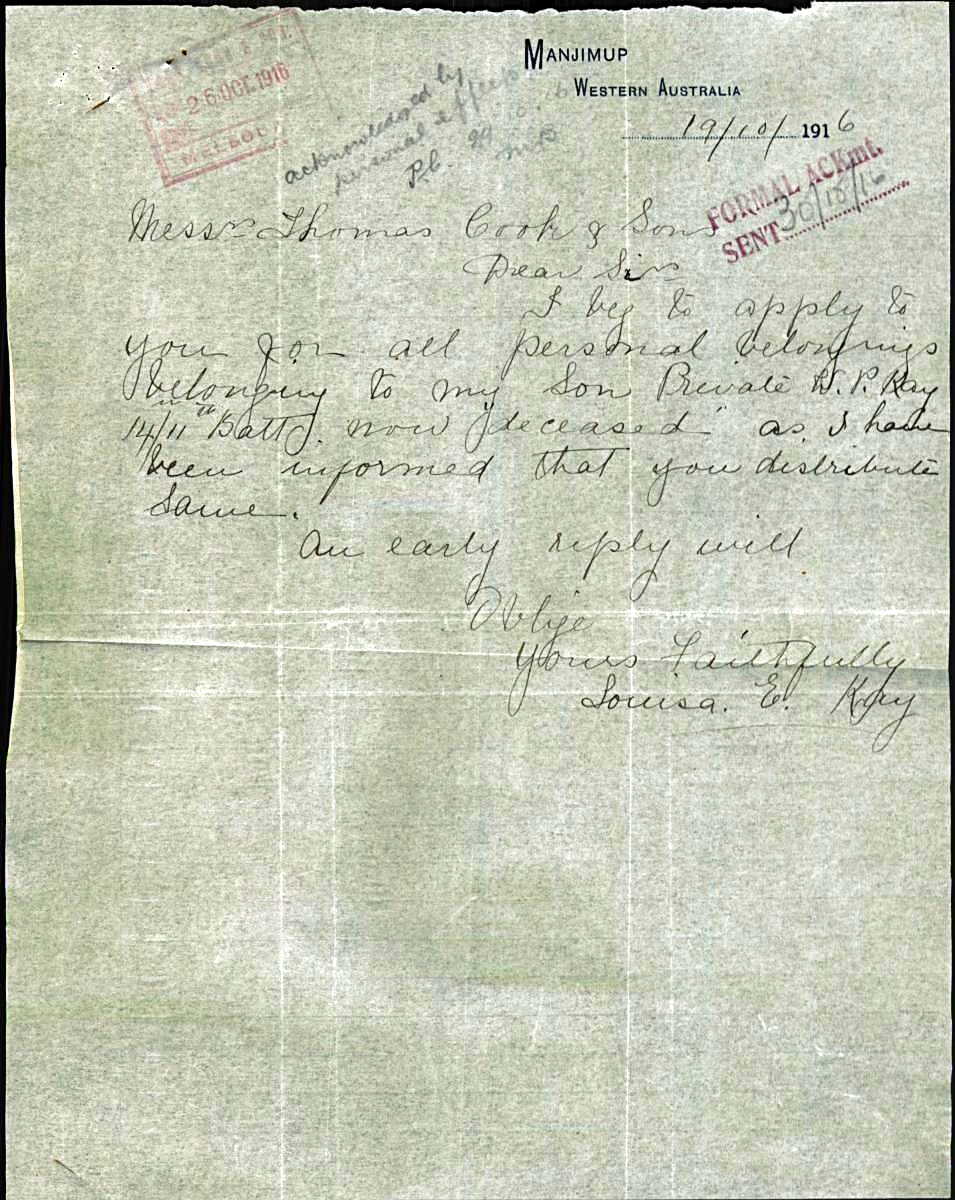 MANJIMUP
WESTERN AUSTRALIA
19/10/ 1916
26 OCT 1916
MELBOU
acknowledged by
personal effects
FORMAL ACKmt.
SENT 30/10/16
Messrs Thomas Cook & Sons
Dear Sirs
I beg to apply to
you for all personal belongings
belonging to my Son Private W. P. Kay
14/11th Batt. now "deceased" as I have
been informed that you distribute
same.
An early reply will
Oblige
Yours Faithfully
Louisa. E. Kay